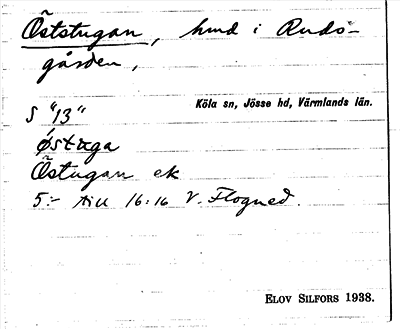 Öststugan, hmd i Rudsgården,
Köla sn, Jösse hd, Värmlands län.
S "13"
østᴂga
Östugan ek
5:- till 16:16 V. Flogned.
ELOV SILFORS 1938.